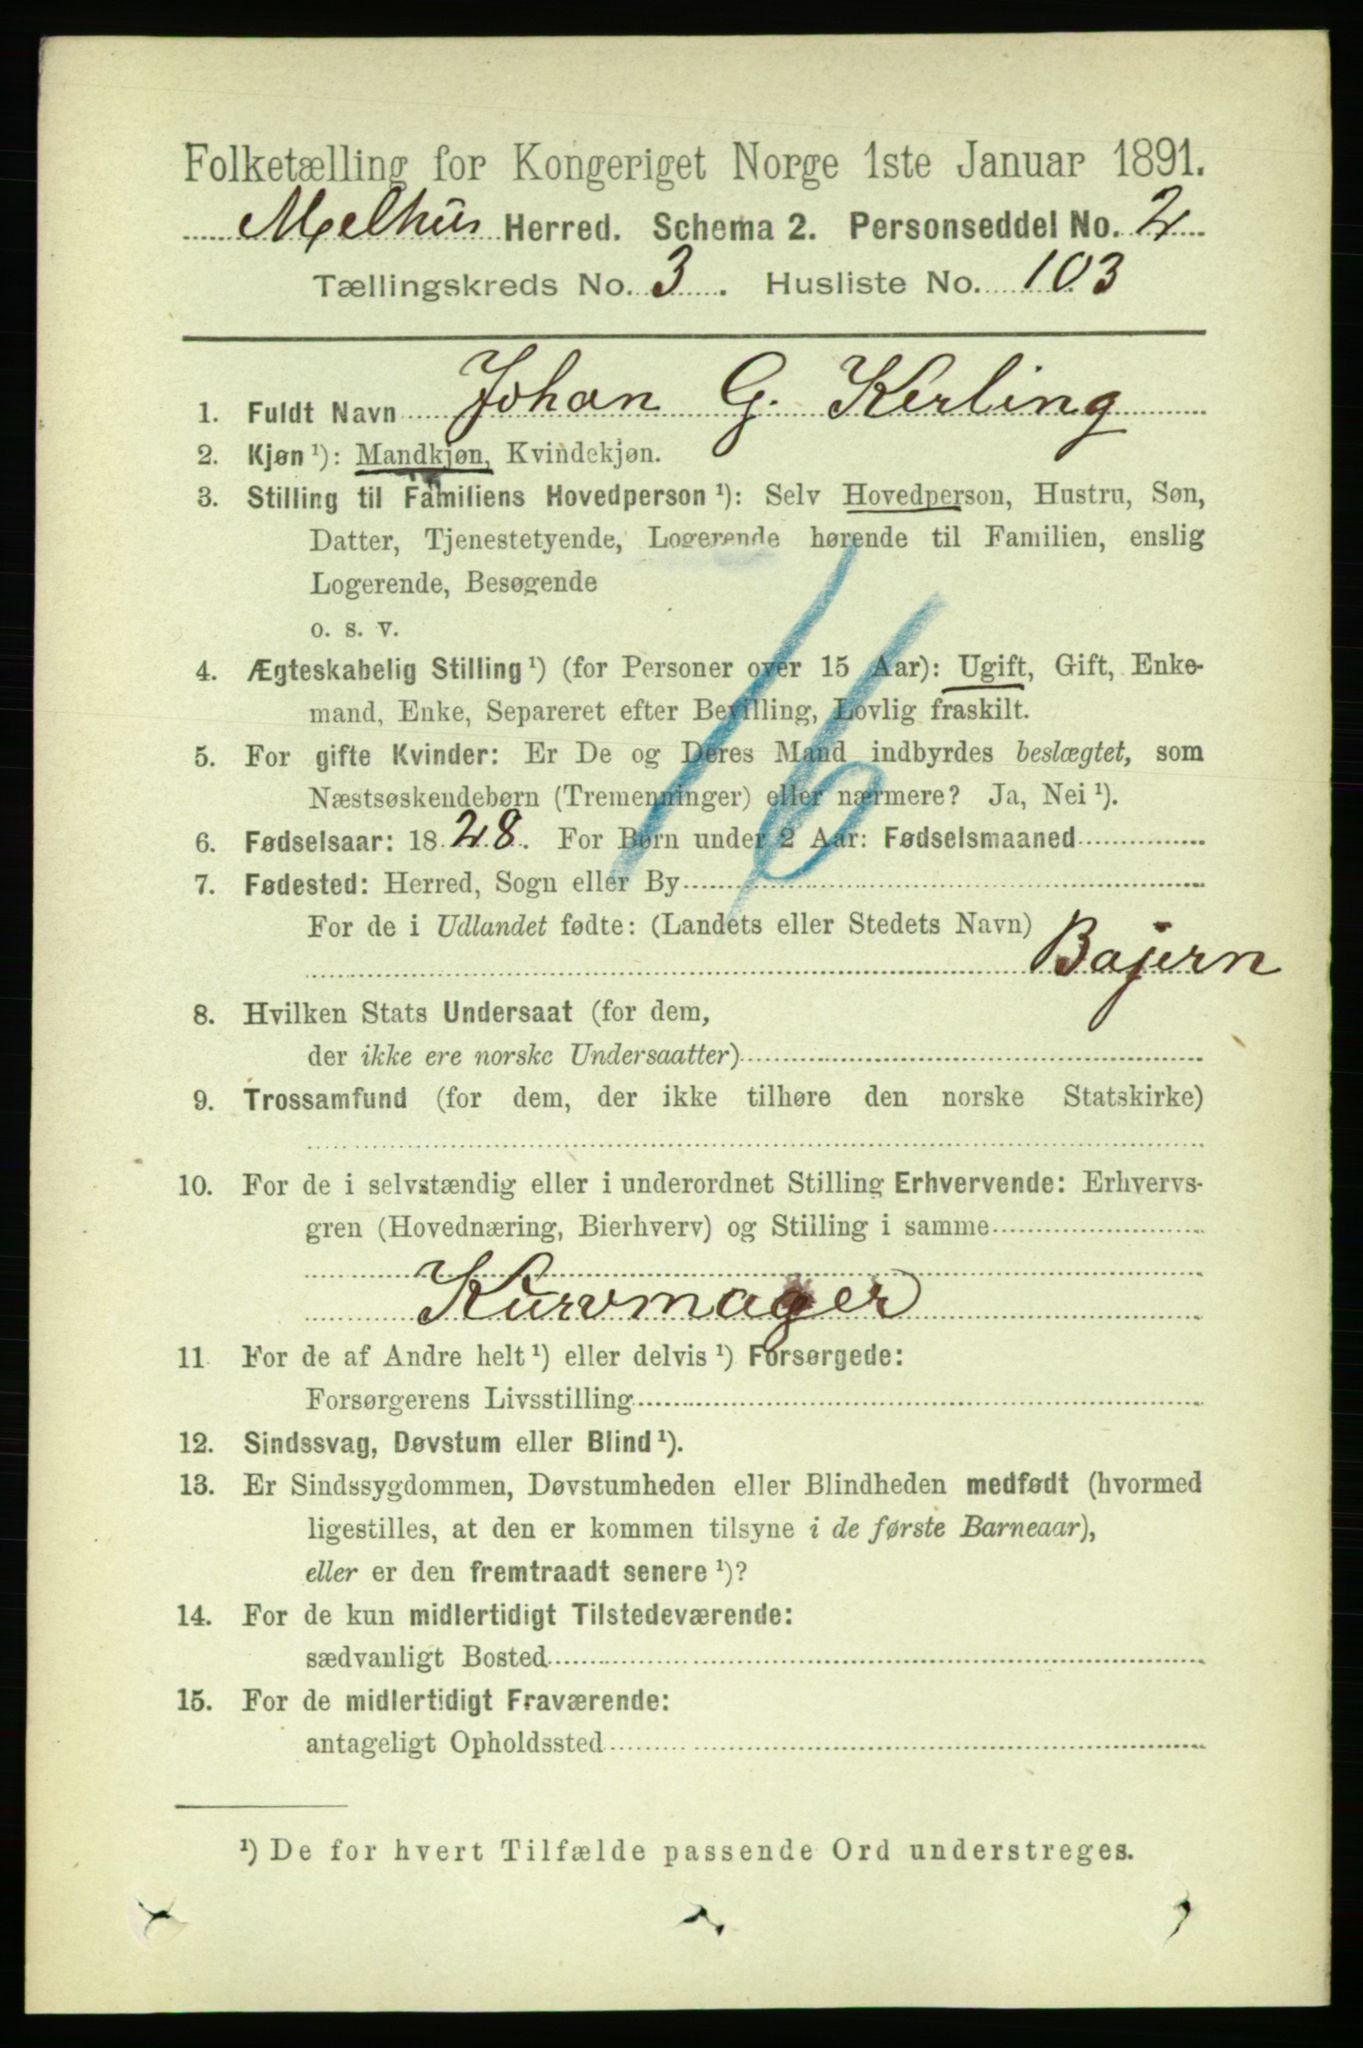 Folketælling for Kongeriget Norge 1ste Januar 1891.
Melhus Herred. Schema 2. Personseddel No. 2
Tællingskreds No. 3. Husliste No. 103
1. Fuldt Navn Johan G. Kerling
2. Kjøn ¹): Mandkjøn, Kvindekjøn.
3. Stilling til Familiens Hovedperson ¹): Selv Hovedperson, Hustru, Søn,
Datter, Tjenestetyende, Logerende hørende til Familien, enslig
Logerende, Besøgende
o. s. v.
4. Ægteskabelig Stilling ¹) (for Personer over 15 Aar): Ugift, Gift, Enke-
mand, Enke, Separeret efter Bevilling, Lovlig fraskilt.
5. For gifte Kvinder: Er De og Deres Mand indbyrdes beslægtet, som
Næstsøskendebørn (Tremenninger) eller nærmere? Ja, Nei ¹).
16
6. Fødselsaar: 1828. For Børn under 2 Aar: Fødselsmaaned
7. Fødested: Herred, Sogn eller By
For de i Udlandet fødte: (Landets eller Stedets Navn)
Bajern
8. Hvilken Stats Undersaat (for dem,
der ikke ere norske Undersaatter)
9. Trossamfund (for dem, der ikke tilhøre den norske Statskirke)
10. For de i selvstændig eller i underordnet Stilling Erhvervende: Erhvervs-
gren (Hovednæring, Bierhverv) og Stilling i samme
Kurvmager
11 For de af Andre helt ¹) eller delvis ¹) Forsørgede:
Forsørgerens Livsstilling
12. Sindssvag, Døvstum eller Blind ¹).
13. Er Sindssygdommen, Døvstumheden eller Blindheden medfødt (hvormed
ligestilles, at den er kommen tilsyne i de første Barneaar),
eller er den fremtraadt senere ¹)?
14. For de kun midlertidigt Tilstedeværende:
sædvanligt Bosted
15. For de midlertidigt Fraværende:
antageligt Opholdssted
¹) De for hvert Tilfælde passende Ord understreges.